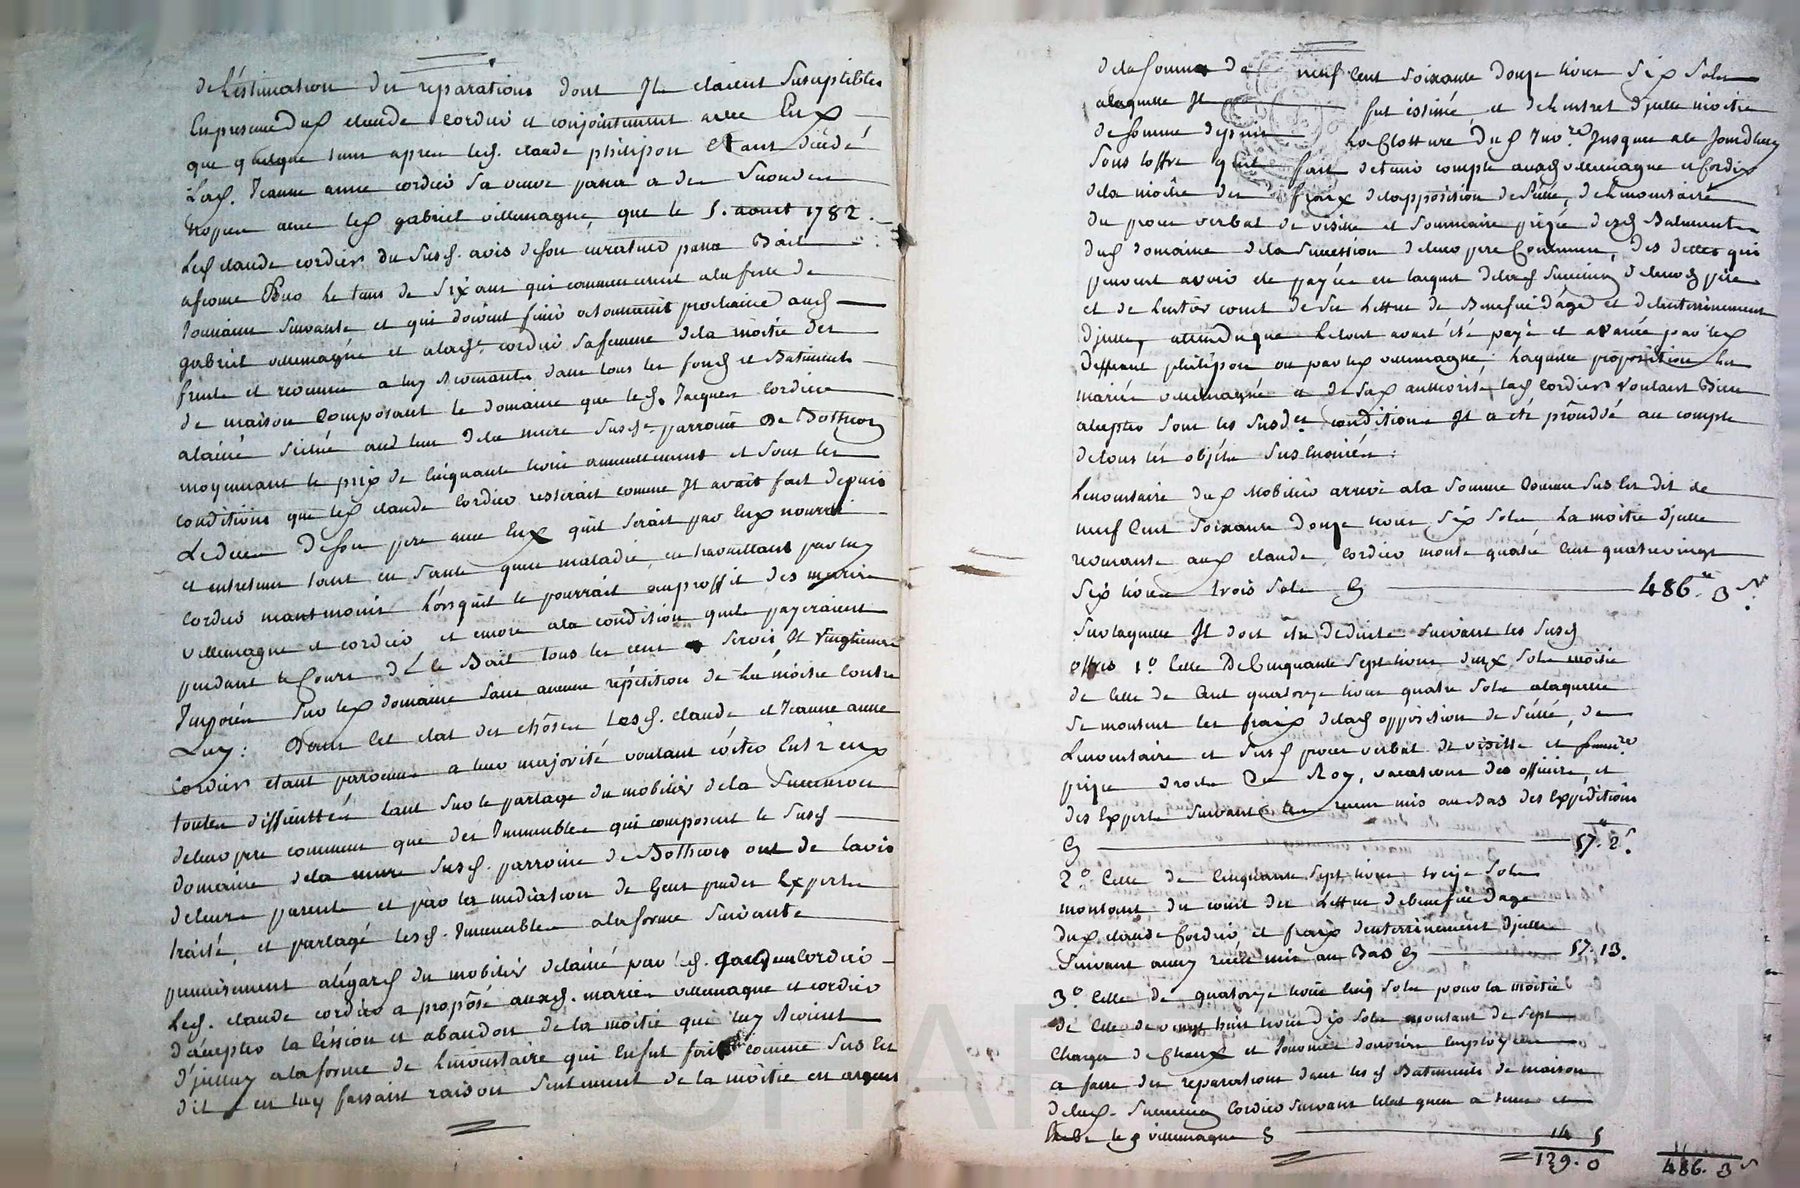 de l'éstimation des reparations dont Il étaient Susceptibles
En presence du d. claude cordier et conjointement avec Eux
que quelque tems apres led. claude philipon Etant décédé
Lad. Jeanne anne cordier Sa veuve passa a de Secondes
nopces avec led. gabriel villemagne, que le 5. aout 1782.
Led claude cordier du Susd. avis de son curateur passa Bail
a ferme Pour le tems de Six ans qui commencerent a la feste de
Toussaint Suivante et qui doivent finir a la toussaint prochaine aud
gabriel villemagne et a lad. cordier Sa femme de la moitié des
fruits et revenus a luy Revenants dans tous les fonds et Batiments
de maison Composant le domaine que led. Jacques Cordier
a laissé Scitué au lieu de la mure Susd. parroisse De Bothéon
moyennant le prix de Cinquante livres annuellement et Sous les
conditions que led claude Cordier resterait comme Il avait fait depuis
Le décés de son pere avec Eux qu'il Serait par Eux nourri
et entretenu tant en Santé qu'en maladie, en travaillant par luy
Cordier neantmoins Lorsquil le pourrait au proffit des mariés
villemagne et cordier et encore a la condition quils payeraient
pendant le Cours de Le Bail tous les cens Servis et vingtiemes
Imposés Sur led domaine Sans aucune répétition de La moitié Contre
Luy: Dans Cet état des choses Lesd. claude et Jeanne anne
Cordier étant parvenus a leur majorité voulant éviter Entr'eux
toutes difficultés tant Sur le partage du mobilier de la Succession
de leur pere commun que des Immeubles qui composent le Susd
domaine de la mure Susd. parroisse de Bothéon ont de lavis
de leurs parents et par la médiation de Gens prudes Experts
traité, et partagé lesd. Immeubles a la forme Suivante
premierement a légard du mobilier délaissé par led. Jacques Cordier
Led. claude cordier a proposé auxd. mariés villemagne et cordier
d'accepter la Céssion et abandon de la moitié qui luy Revient
d'jcelluy a la forme de Linventaire qui En fut fait comme Sus Est
dit en luy faisant raison Seulement de la moitié en argent
de la Somme de neuf Cent Soixante douze livres Six Sols
a laquelle Il fut éstimé, et de Linteret d'jcelle moitié
de Somme depuis La Clotture dud Invre. Jusques a ce Jourdhuy
Sous loffre quil fait de tenir compte auxd villemagne et Cordier
de la moitié des fraix de lapposition de Scellé, de Linventaire
du procés verbal de visitte et Sommaire prisée desd Batiments
dud domaine de la Succession de leur pere Commun, des dettes qui
peuvent avoir été payées en lacquit de lad Succession de leurd pere
et de Lentier cout de Ses Lettres de Benefice d'age et de lenterrinement
d'jcelles, attendu que Letout avait été payé et avancé par led
deffunt philipon ou par led villemagne: Laquelle proposition les
mariés villemagne et de Sa authorité lad Cordier voulant Bien
accepter Sous les Susdes. conditions Il a été procédé au compte
de tous les objéts Susénoncés:
Linventaire dud Mobilier arrive a la Somme Comme Sus Est dit de
neuf Cent Soixante Douze livres Six Sols La moitié d'jcelle
revenante aud. claude Cordier monte quatre Cent quatrevingt
Six livres trois Sols Cy 486.# 3s.
Sur laquelle Il doit étre déduit Suivant les Susd
offres 1° Celle De Cinquante Sept livres deux Sols moitié
de Celle de Cent quatorze livres quatre Sols a laquelle
Se montent les fraix de lad apposition de Scéllé, de
Linventaire et Susd procés verbal de visitte et somre.
prisée droits Du Roy, vacations des officiers, et
des Experts Suivant les recus mis au Bas des Expeditions
Cy 57.# 2s.
2° Celle de Cinquante Sept livres treize Sols
montant du cout des Lettres de benefice dage
dud. claude Cordier, et fraix denterrinement d'jcelles
Suivant aussy recu mis au Bas Cy 57. 13.
3° Celle de quatorze livres Cinq Sols pour la moitié
de Celle de vingt huit livres dix Sols montant de Sept
Charges de Chaux et Journées douvriers Employées
a faire des reparations dans lesd Batiments de maison
de lad. Succession Cordier Suivant létat quen a tenu et
led villemagne Cy 14 5
129. 0 486. 3s